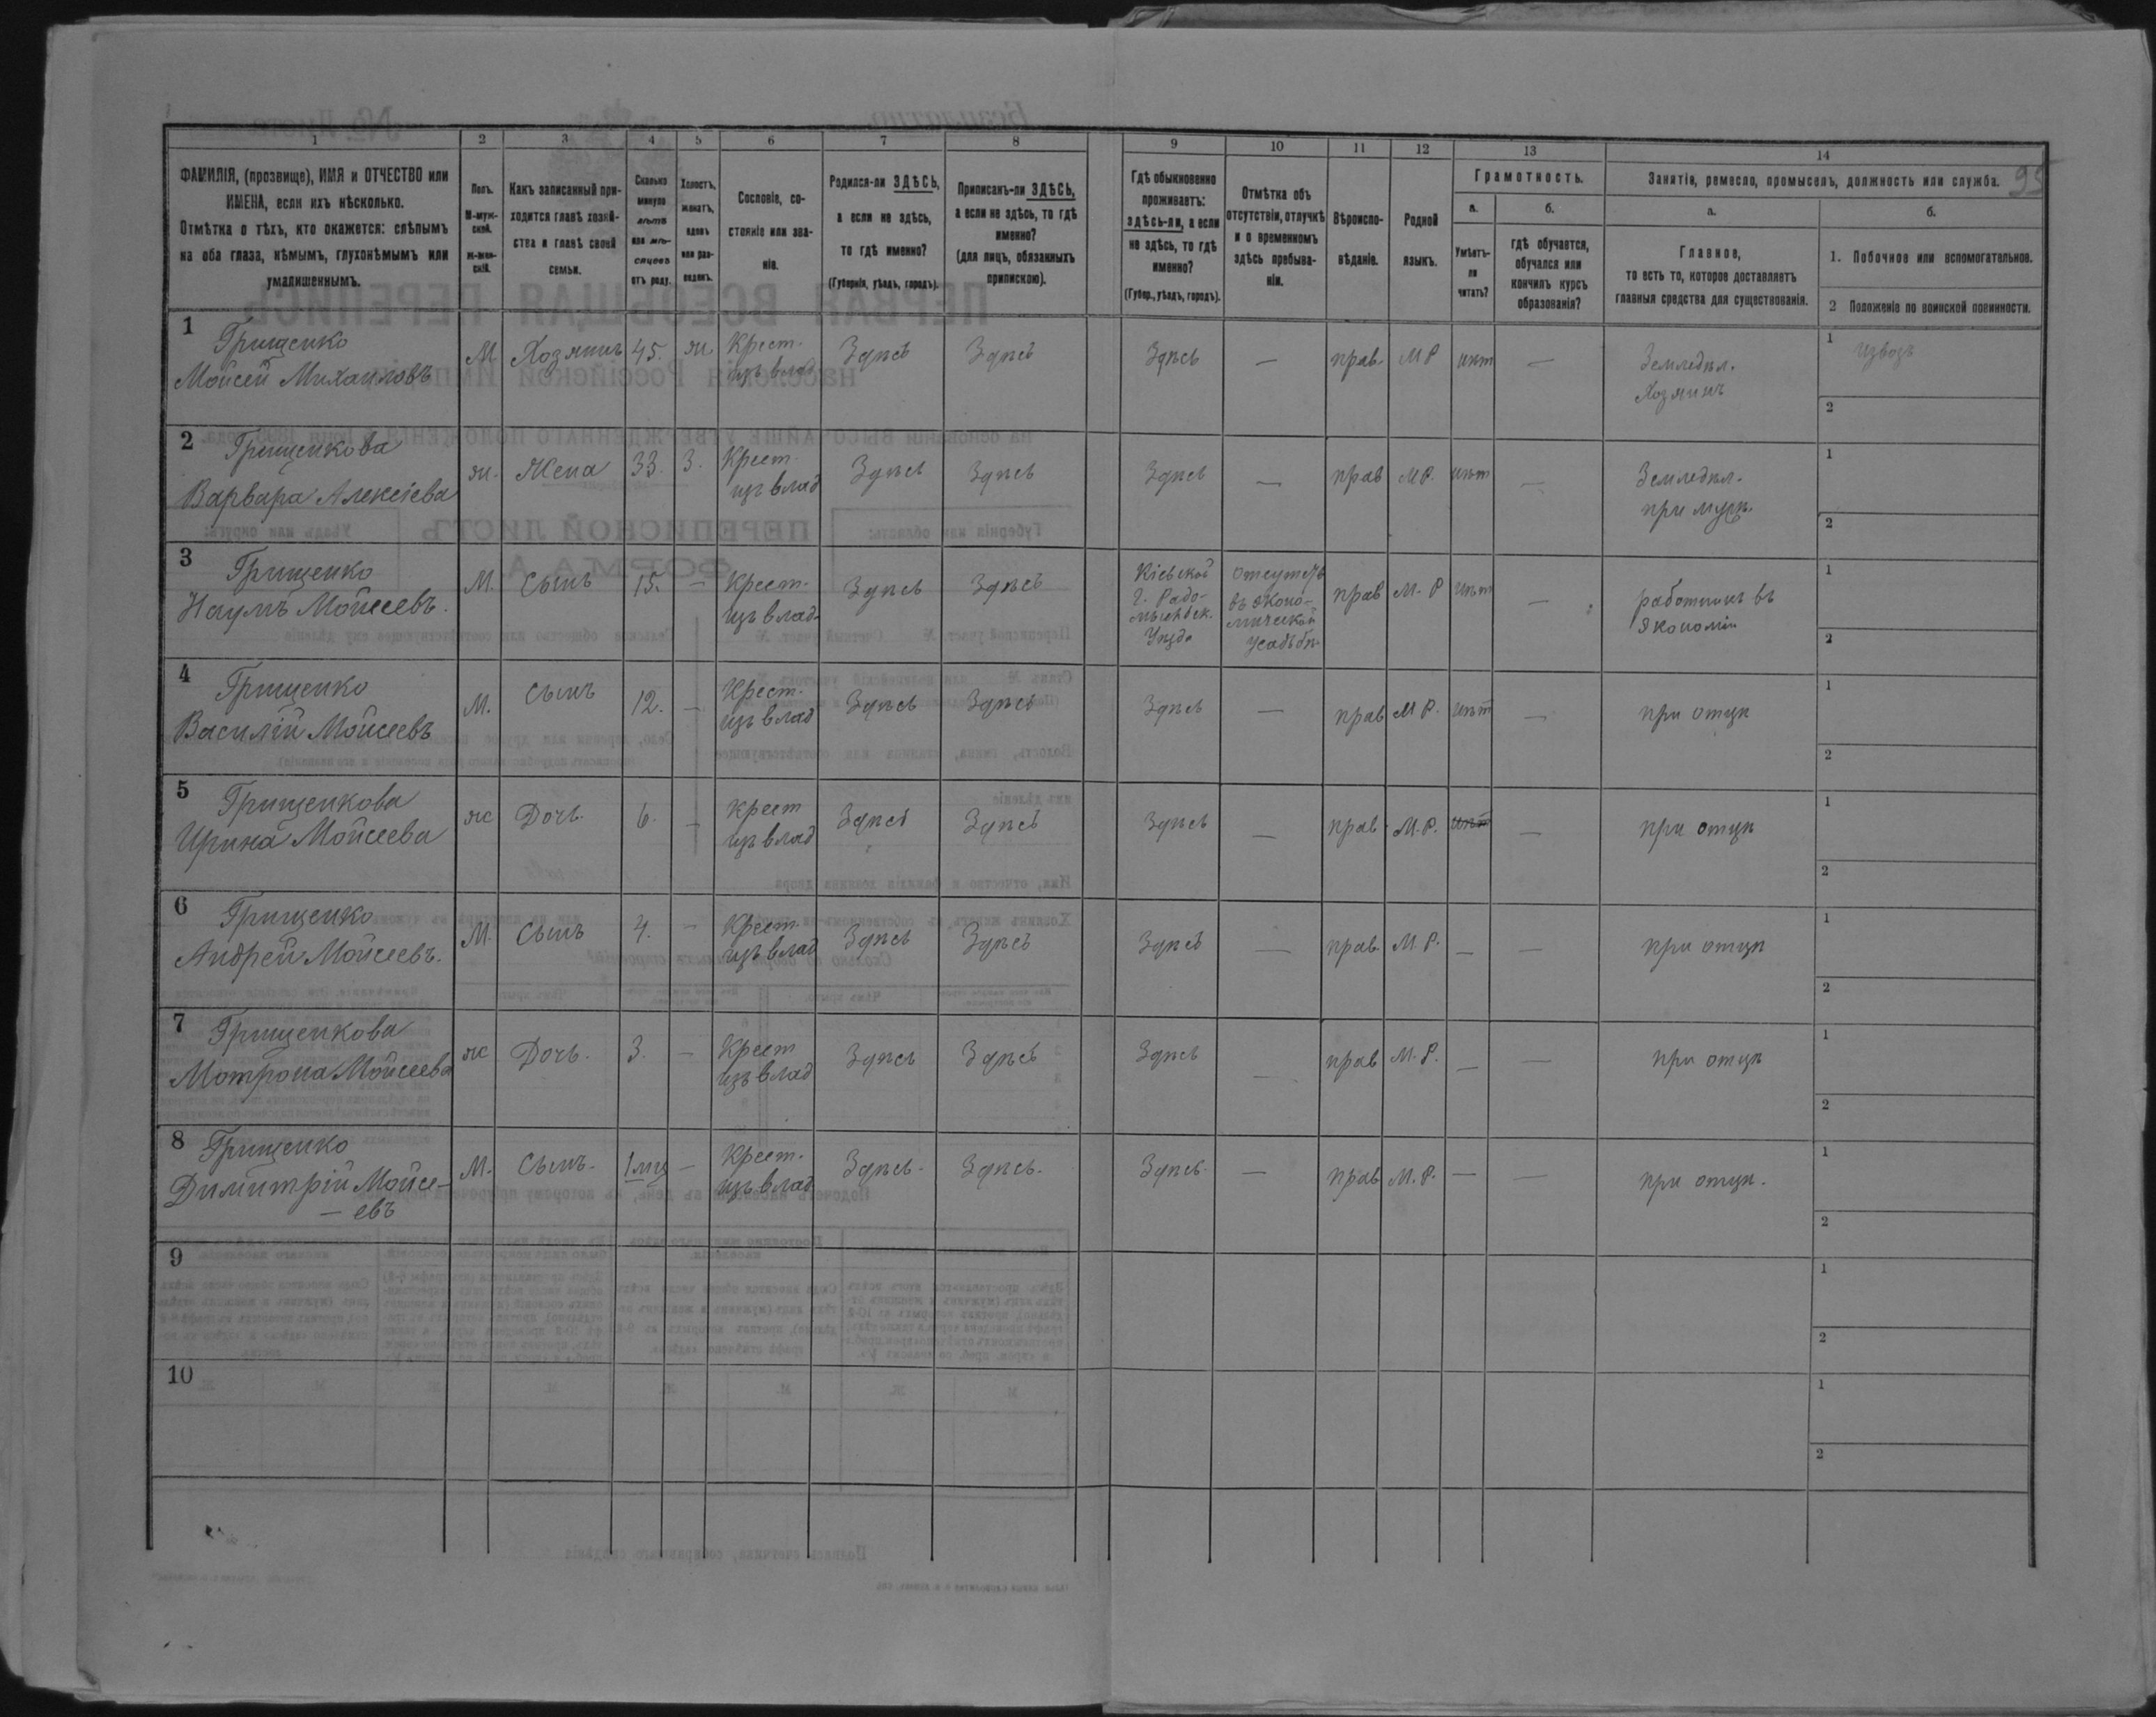 95
1 2 3 4 5 6 7 8 9 10 11 12 13 14
ФАМИЛІЯ, (прозвище), ИМЯ и ОТЧЕСТВО или
ИМЕНА, если ихъ нѣсколько.
Отмѣтка о тѣхъ, кто окажется: слѣпымъ
на оба глаза, нѣмымъ, глухонѣмымъ или
умалишеннымъ.
Полъ.
М-муж-
ской.
ж-жен-
скій.
Какъ записанный при-
ходится главѣ хозяй-
ства и главѣ своей
семьи.
Сколько
минуло
лѣтъ
или мѣ-
сяцевъ
отъ роду.
Холостъ,
женатъ,
вдовъ
или раз-
веденъ.
Сословіе, со-
стояніе или зва-
ніе.
Родился-ли ЗДѢСЬ,
а если не здѣсь,
то гдѣ именно?
(Губернія, уѣздъ, городъ).
Приписанъ-ли ЗДѢСЬ,
а если не здѣсь, то гдѣ
именно?
(для лицъ, обязанныхъ
припискою).
Гдѣ обыкновенно
проживаетъ:
здѣсь-ли, а если
не здѣсь, то гдѣ
именно?
(Губер., уѣздъ, городъ).
Отмѣтка объ
отсутствіи, отлучкѣ
и о временномъ
здѣсь пребыва-
ніи.
Вѣроиспо-
вѣданіе.
Родной
языкъ.
Грамотность.
а.
Умѣетъ-
ли
читать?
б.
гдѣ обучается,
обучался или
кончилъ курсъ
образованія?
Занятіе, ремесло, промыселъ, должность или служба.
а.
Главное,
то есть то, которое доставляетъ
главныя средства для существованія.
б.
1. Побочное или вспомогательное.
2 Положеніе по воинской повинности.
1 Грищенко
Мойсей Михаиловъ
М Хозяинъ 45. ж. Крест.
изъ влад
Здѣсь Здѣсь Здѣсь — прав. М Р нѣт — Земледѣл.
Хозяинъ
1 Извозъ
2
2 Грищенкова
Варвара Алексіева
ж. Жена 33. З. Крест.
изъ влад
Здѣсь Здѣсь Здѣсь — прав М Р. нѣт — Земледѣл.
при муж.
1
2
3 Грищенко
Наумъ Мойсеевъ.
М. Сынъ 15. — Крест.
изъ влад.
Здѣсь Здѣсь
Кіевской
г. Радо-
мысльск.
Уѣзда
отсутств
въ эконо-
мической
усадьбѣ
прав М. Р нѣт — работникъ въ
экономіи
1
2
4 Грищенко
Василій Мойсеевъ
М. Сынъ 12. — Крест.
изъ влад
Здѣсь Здѣсь Здѣсь — прав М Р. нѣт — при отцѣ
1
2
5 Грищенкова
Ирина Мойсеева
ж Дочь. 6. — Крест
изъ влад
Здѣсь Здѣсь Здѣсь — прав. М. Р. нѣт — при отцѣ
1
2
6 Грищенко
Андрей Мойсеевъ.
М. Сынъ 4. — Крест.
изъ влад
Здѣсь Здѣсь Здѣсь — прав. М Р. — — при отцѣ
1
2
7 Грищенкова
Мотрона Мойсеева
ж Дочь. 3. — Крест
изъ влад
Здѣсь Здѣсь Здѣсь — прав М. Р. — — при отцѣ
1
2
8 Грищенко
Димитрій Мойсе-
— евъ
М. Сынъ. 1 мц — Крест.
изъ влад
Здѣсь. Здѣсь. Здѣсь. — прав М. Р. — — при отцѣ.
1
2
9
1
2
10
1
2